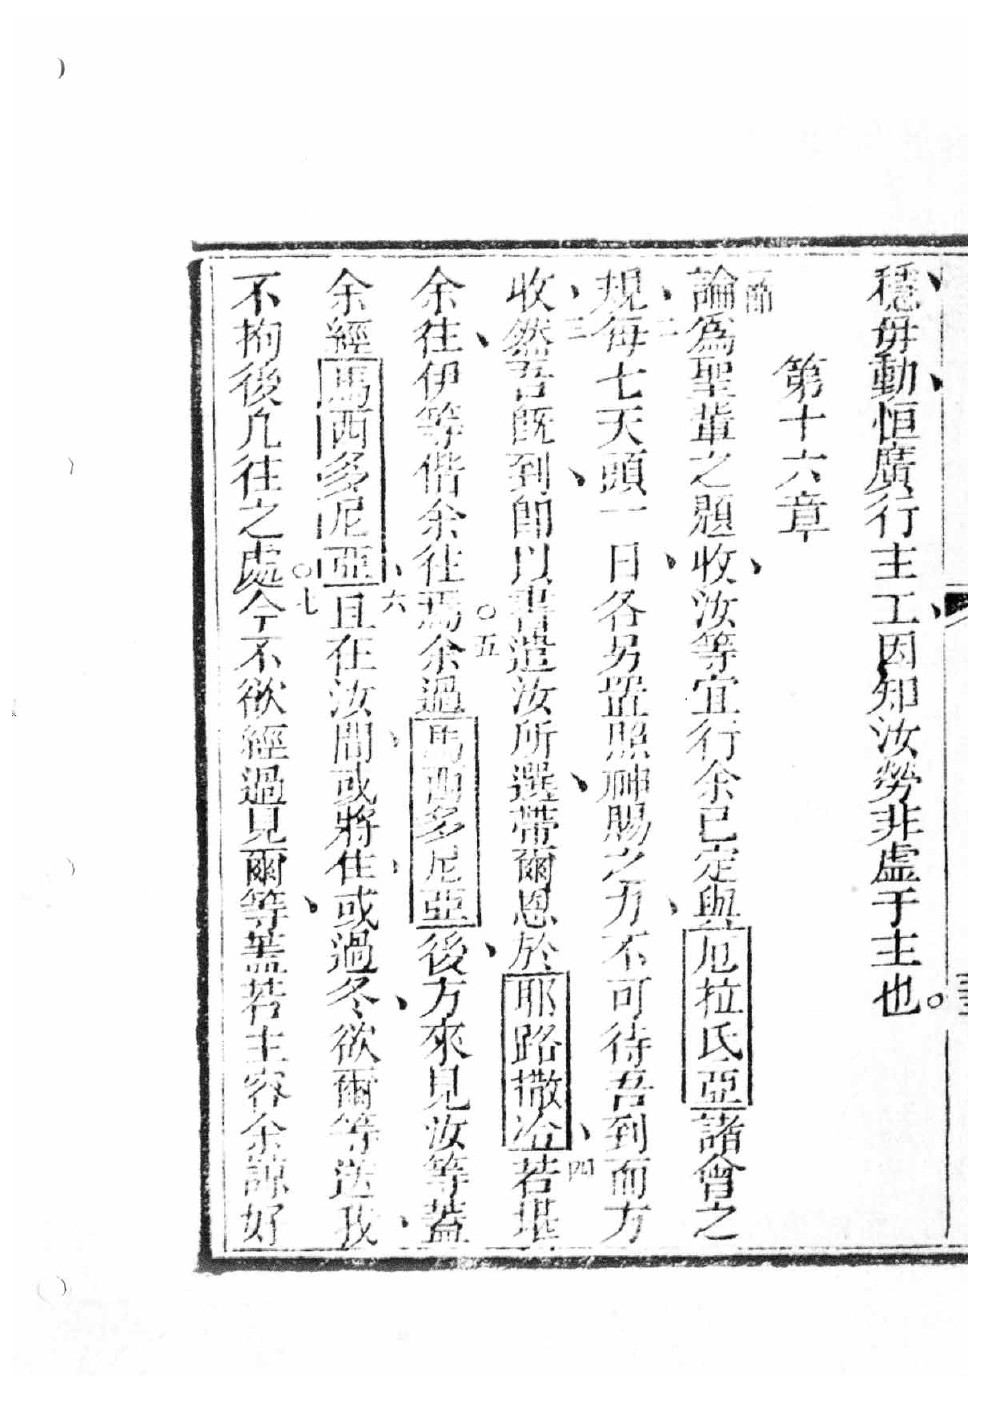 穩毋動、恒廣行主工、因知汝勞非虛于主也。
第十六章
一節論為聖輩之題收、汝等宜行余已定與厄拉氏亞諸會之
規、二每七天頭一日、各另置照神賜之力、不可待吾到而方
收、三然吾既到、即以書遣汝所選、帶爾恩於耶路撒冷、四若堪
余往、伊等偕余往焉○五余過馬西多尼亞後、方來見汝等蓋
余經馬西多尼亞、六且在汝間、或將住、或過冬、欲爾等送我、
不拘後凡往之處○七今不欲經過見爾等、蓋若主容余諒好